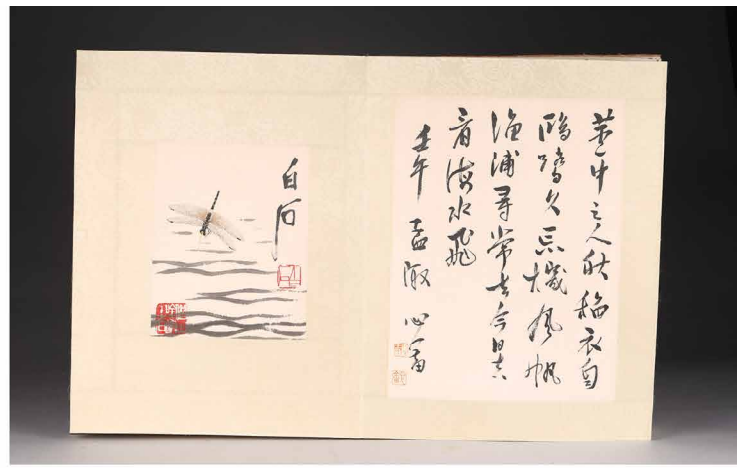 中之人秋縞衣白
鷗鷺久忘機風帆
漁浦尋常去今日真
看海水飛
壬午孟陬心畬
白石